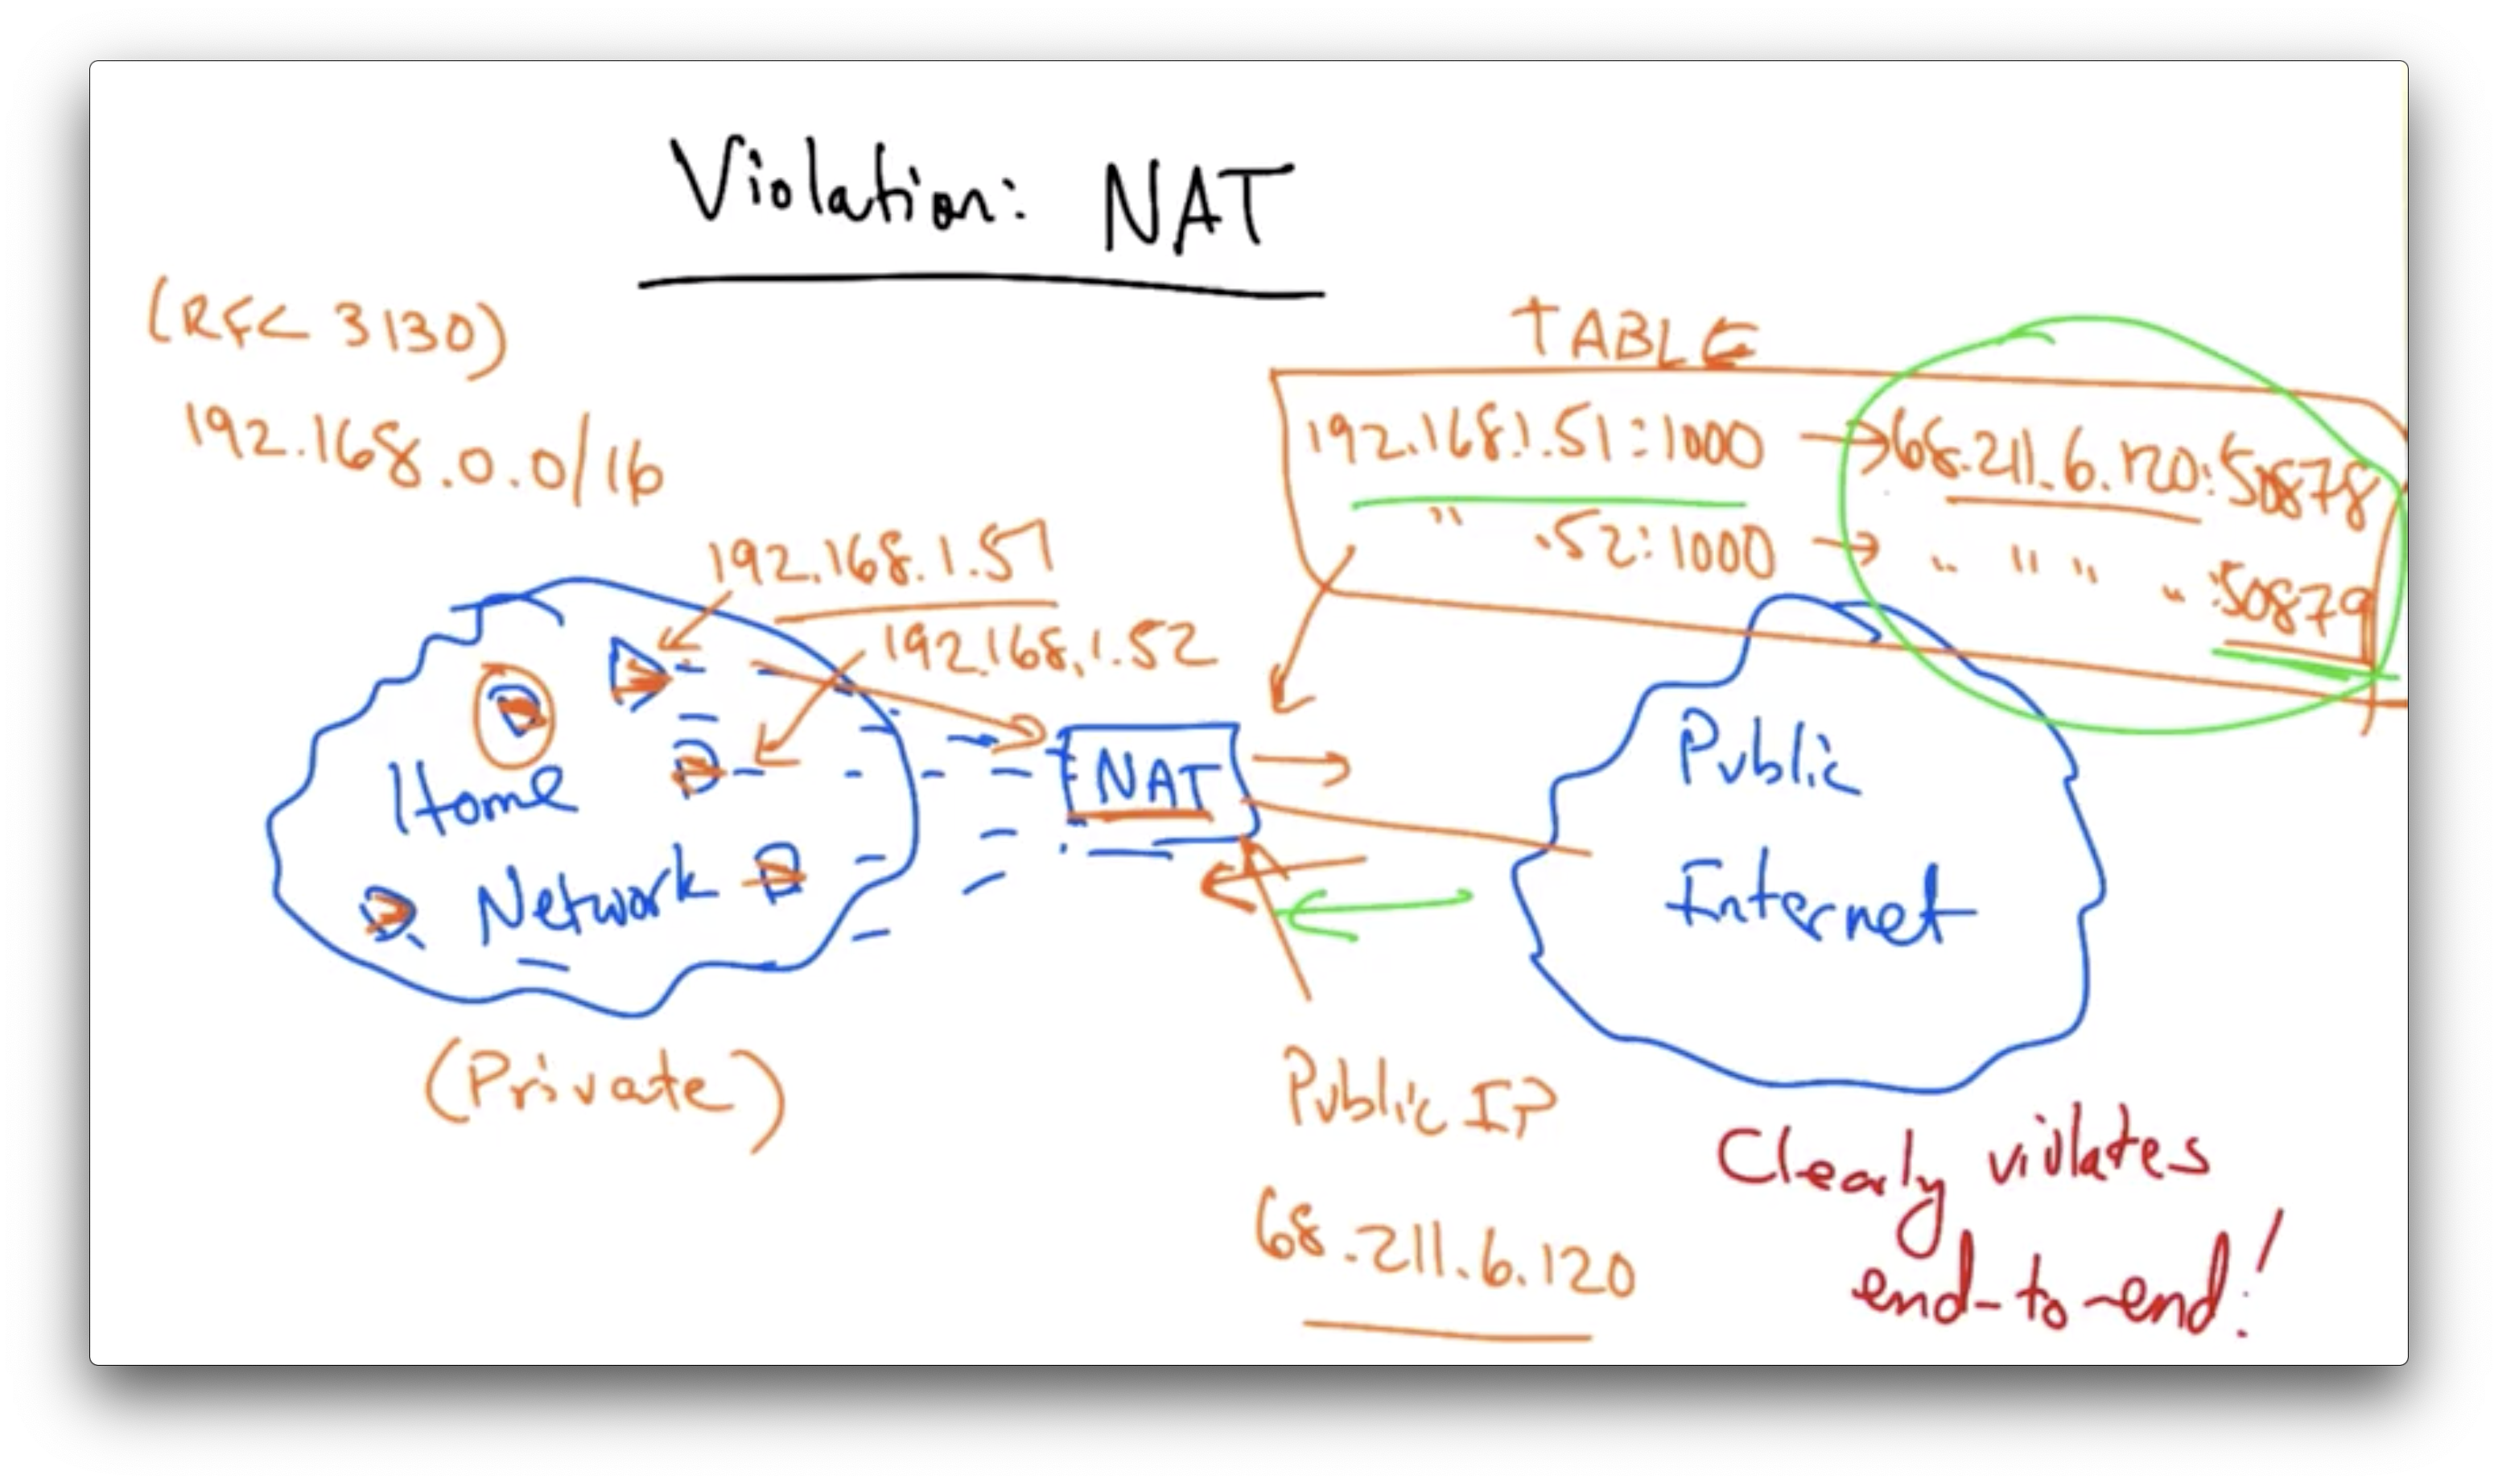 Violation: NAT
(RFC 3130)
192.168.0.0/16
TABLE
192.168.1.51:1000 → 68.211.6.120:50878
" .52:1000 → " " " " :50879
192.168.1.51
192.168.1.52
Home
Network
(Private)
NAT
Public
Internet
Public IP
68.211.6.120
Clearly violates
end-to-end!